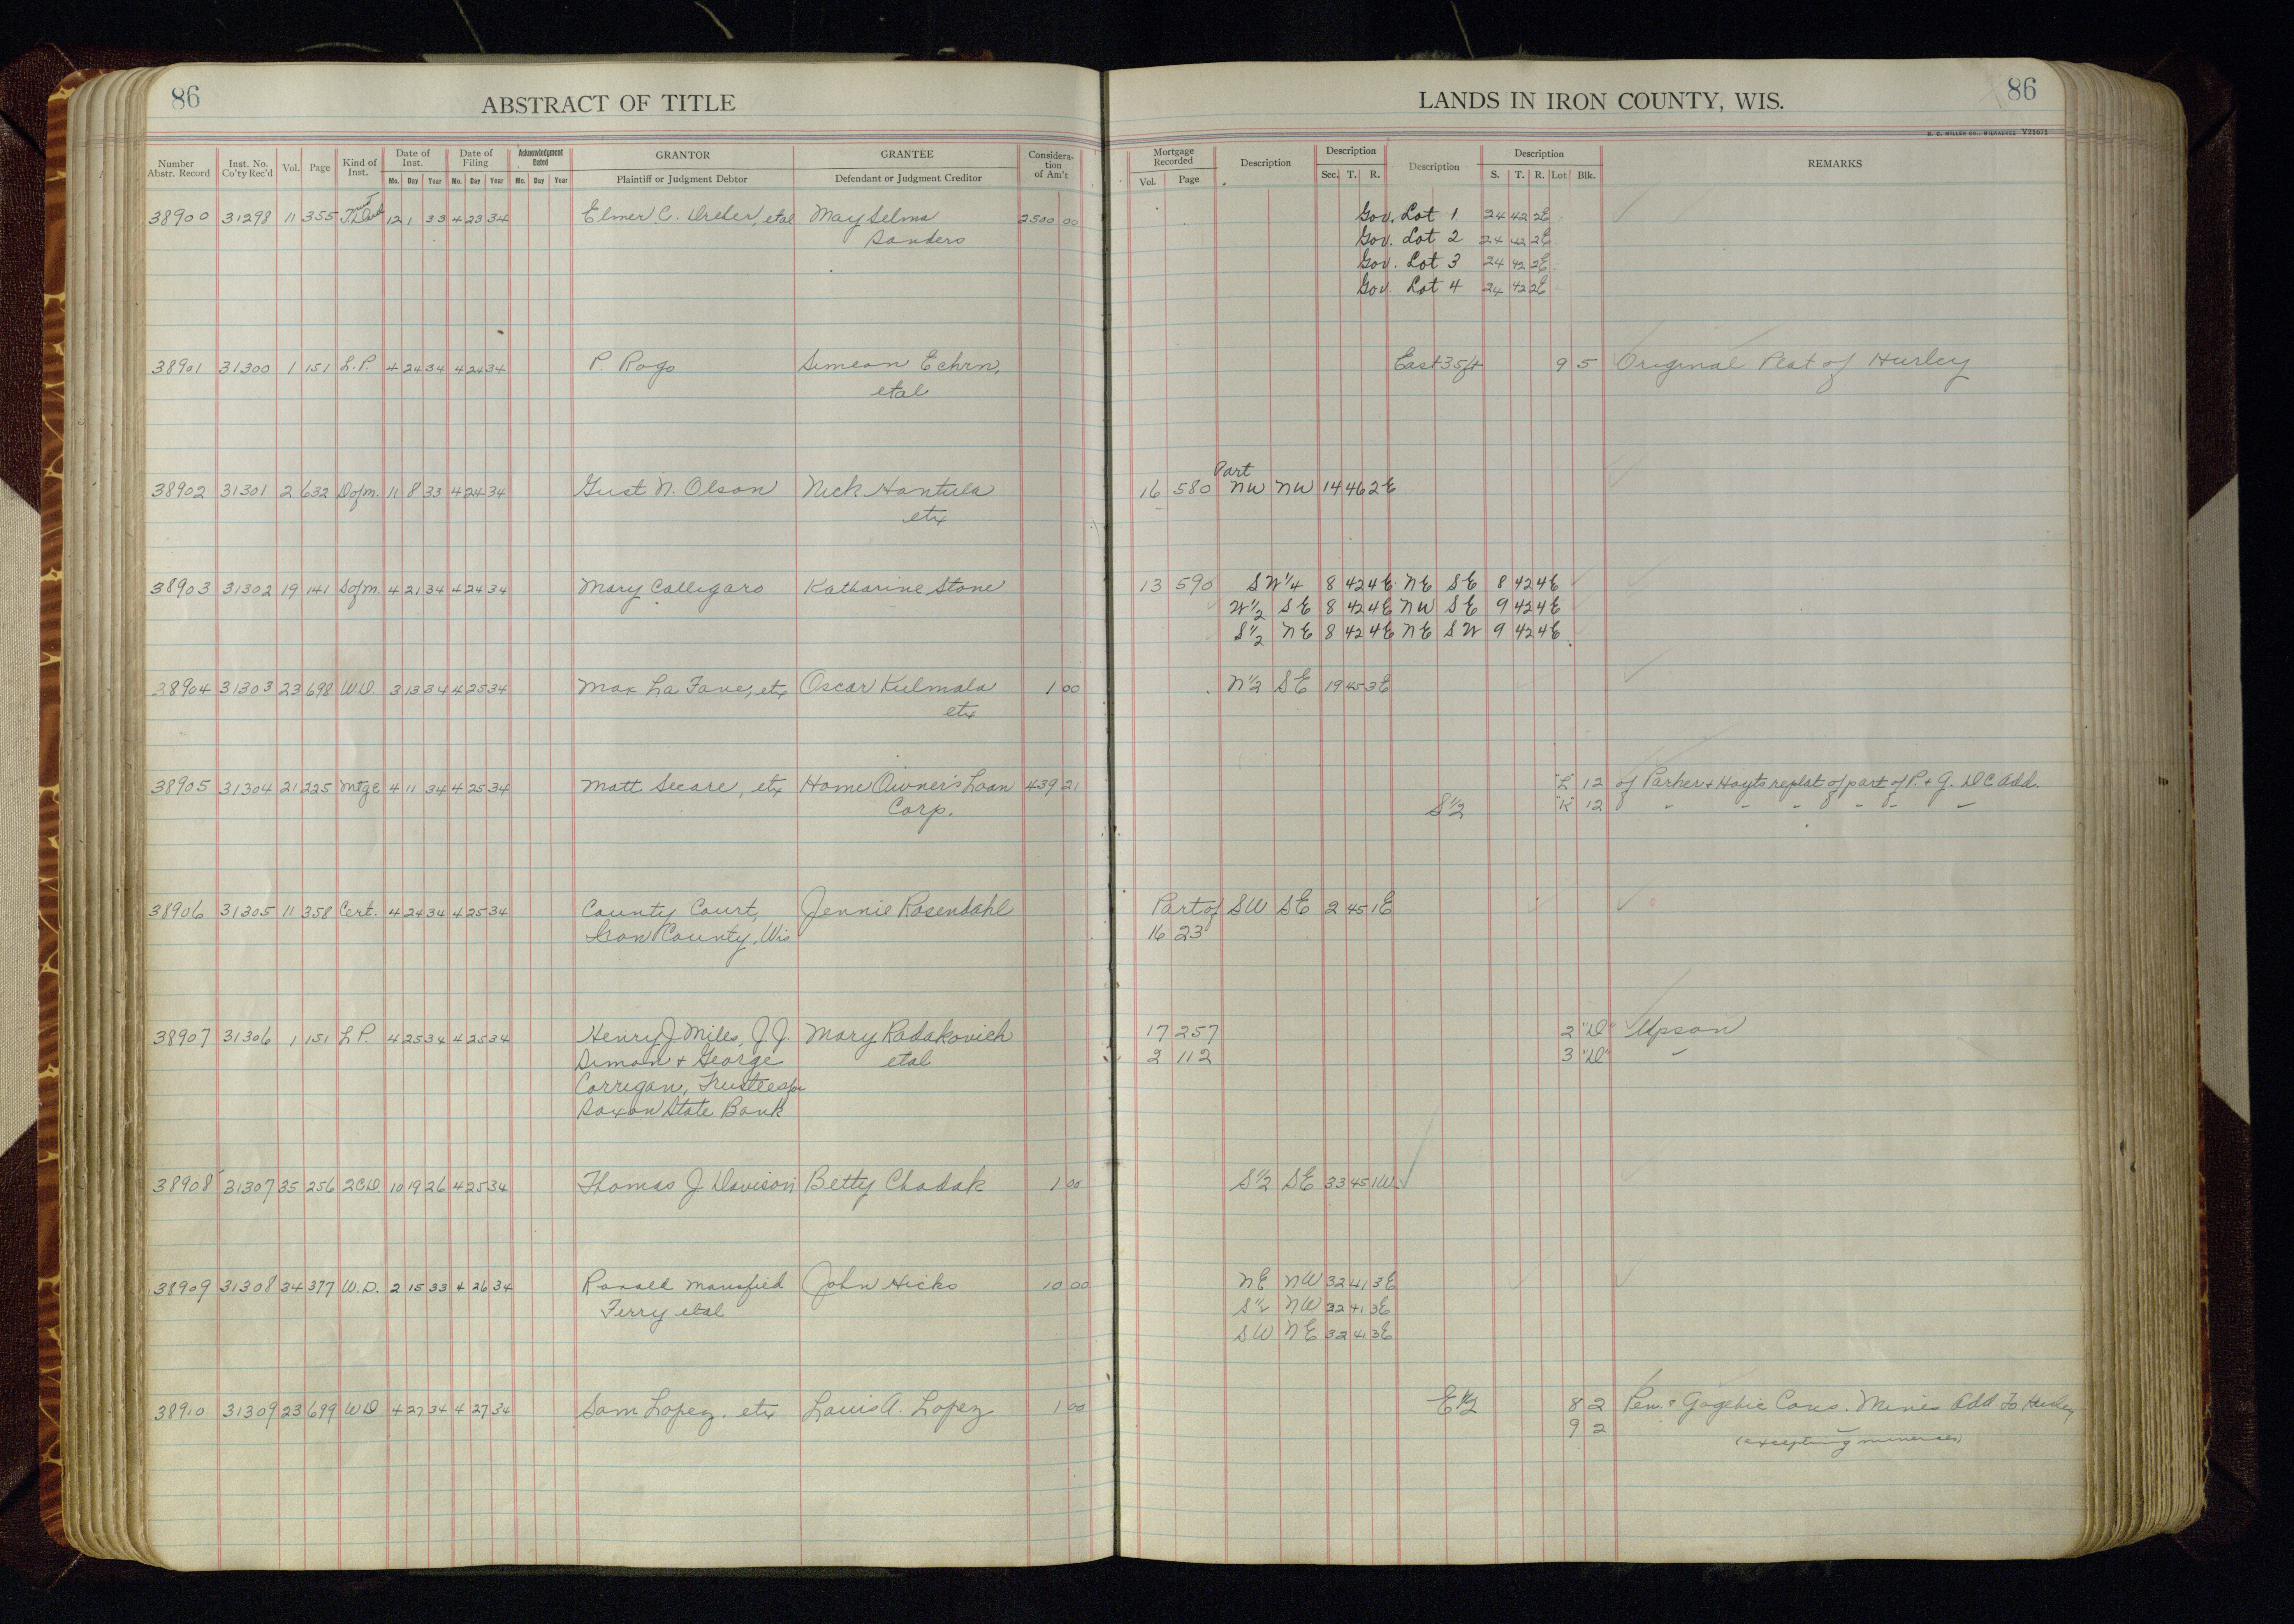 86
ABSTRACT OF TITLE
Number Abstr. Record Inst. No. Co'ty Rec'd Vol. Page Kind of Inst. Date of Inst. Date of Filing Acknowledgment Dated GRANTOR GRANTEE Considera-tion of Am't
Mo. Day Year Mo. Day Year Mo. Day Year Plaintiff or Judgment Debtor Defendant or Judgment Creditor
38900 31298 11 355 12 1 33 4 23 34 Elmer C. etal May Selma 2500 00
Sanders
38901 31300 1 151 L.P. 4 24 34 4 24 34 P. Rogo Simeon Echrn,
etal
38902 31301 2 632 Dofm. 11 8 33 4 24 34 Gust N. Olson Nick Hantula
etx
38903 31302 19 141 Sofm. 4 21 34 4 24 34 Mary Calligaro Katharine Stone
38904 31303 23 698 W.D. 3 13 34 4 25 34 Max La Fave, etx Oscar Kulmala 1 00
etx
38905 31304 21 225 Mtge 4 11 34 4 25 34 Matt Secare, etx Home Owner's Loan 439 21
Corp.
38906 31305 11 358 Cert. 4 24 34 4 25 34 County Court, Jennie Rosendahl
Iron County, Wis
38907 31306 1 151 L.P. 4 25 34 4 25 34 Henry J. Miles, J.J. Mary Radakovich
Simon + George etal
Corrigan, Trustees for
Saxon State Bank
38908 31307 35 256 2CD. 10 19 26 4 25 34 Thomas J Davison Betty Chadak 1 00
38909 31308 34 377 W.D. 2 15 33 4 26 34 Ronald Mansfield John Hicks 10 00
Ferry etal
38910 31309 23 699 WD 4 27 34 4 27 34 Sam Lopez, etx Louis A. Lopez 1 00
LANDS IN IRON COUNTY, WIS.
86
H. C. MILLER CO., MILWAUKEE V21671
Mortgage Recorded Description Description Description Description REMARKS
Vol. Page Sec. T. R. S. T. R. Lot Blk.
Gov. Lot 1 24 42 2E
Gov. Lot 2 24 42 2E
Gov. Lot 3 24 42 2E
Gov. Lot 4 24 42 2E
East 35ft 9 5 Original Plat of Hurley
Part
16 580 NW NW 14 46 2E
13 590 SW1/4 8 42 4E NE SE 8 42 4E
W1/2 SE 8 42 4E NW SE 9 42 4E
S1/2 NE 8 42 4E NE SW 9 42 4E
N1/2 SE 19 45 3E
"L" 12 of Parker + Hoyts replat of part of P. + G. D C Add.
S1/2 "K" 12 " " " " " "
Part of SW SE 2 45 1E
16 23
17 257 2 "D" Upson
2 112 3 "D" "
S1/2 SE 33 45 1W
NE NW 32 41 3E
S1/2 NW 32 41 3E
SW NE 32 41 3E
E1/2 8 2 Pen. & Gogebic Cons. Mines Add. to Hurley
9 2
(excepting minerals)